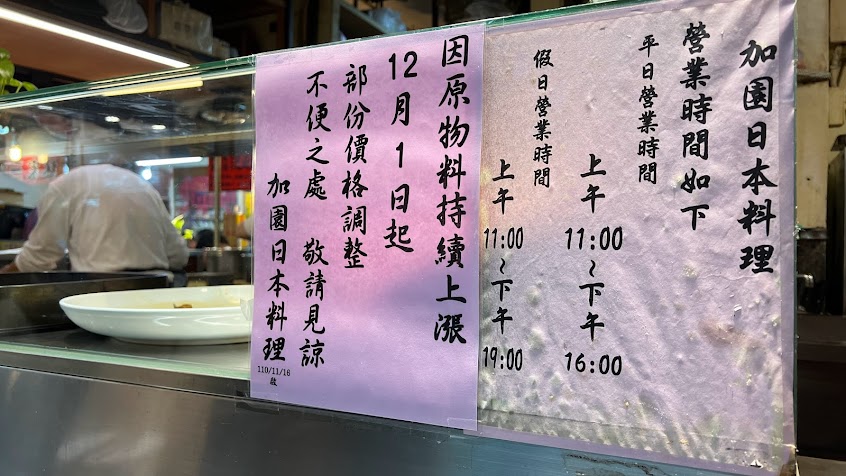 加園日本料理
營業時間如下
平日營業時間
上午 11:00~下午 16:00
假日營業時間
上午 11:00~下午 19:00
因原物料持續上漲
12月1日起
部份價格調整
不便之處 敬請見諒
加園日本料理
110/11/16
啟